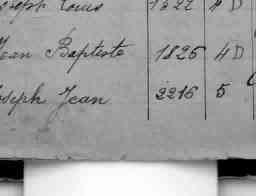 Joseph Louis 1322 4 D
Jean Baptiste 1826 4 D
Joseph Jean 2216 5